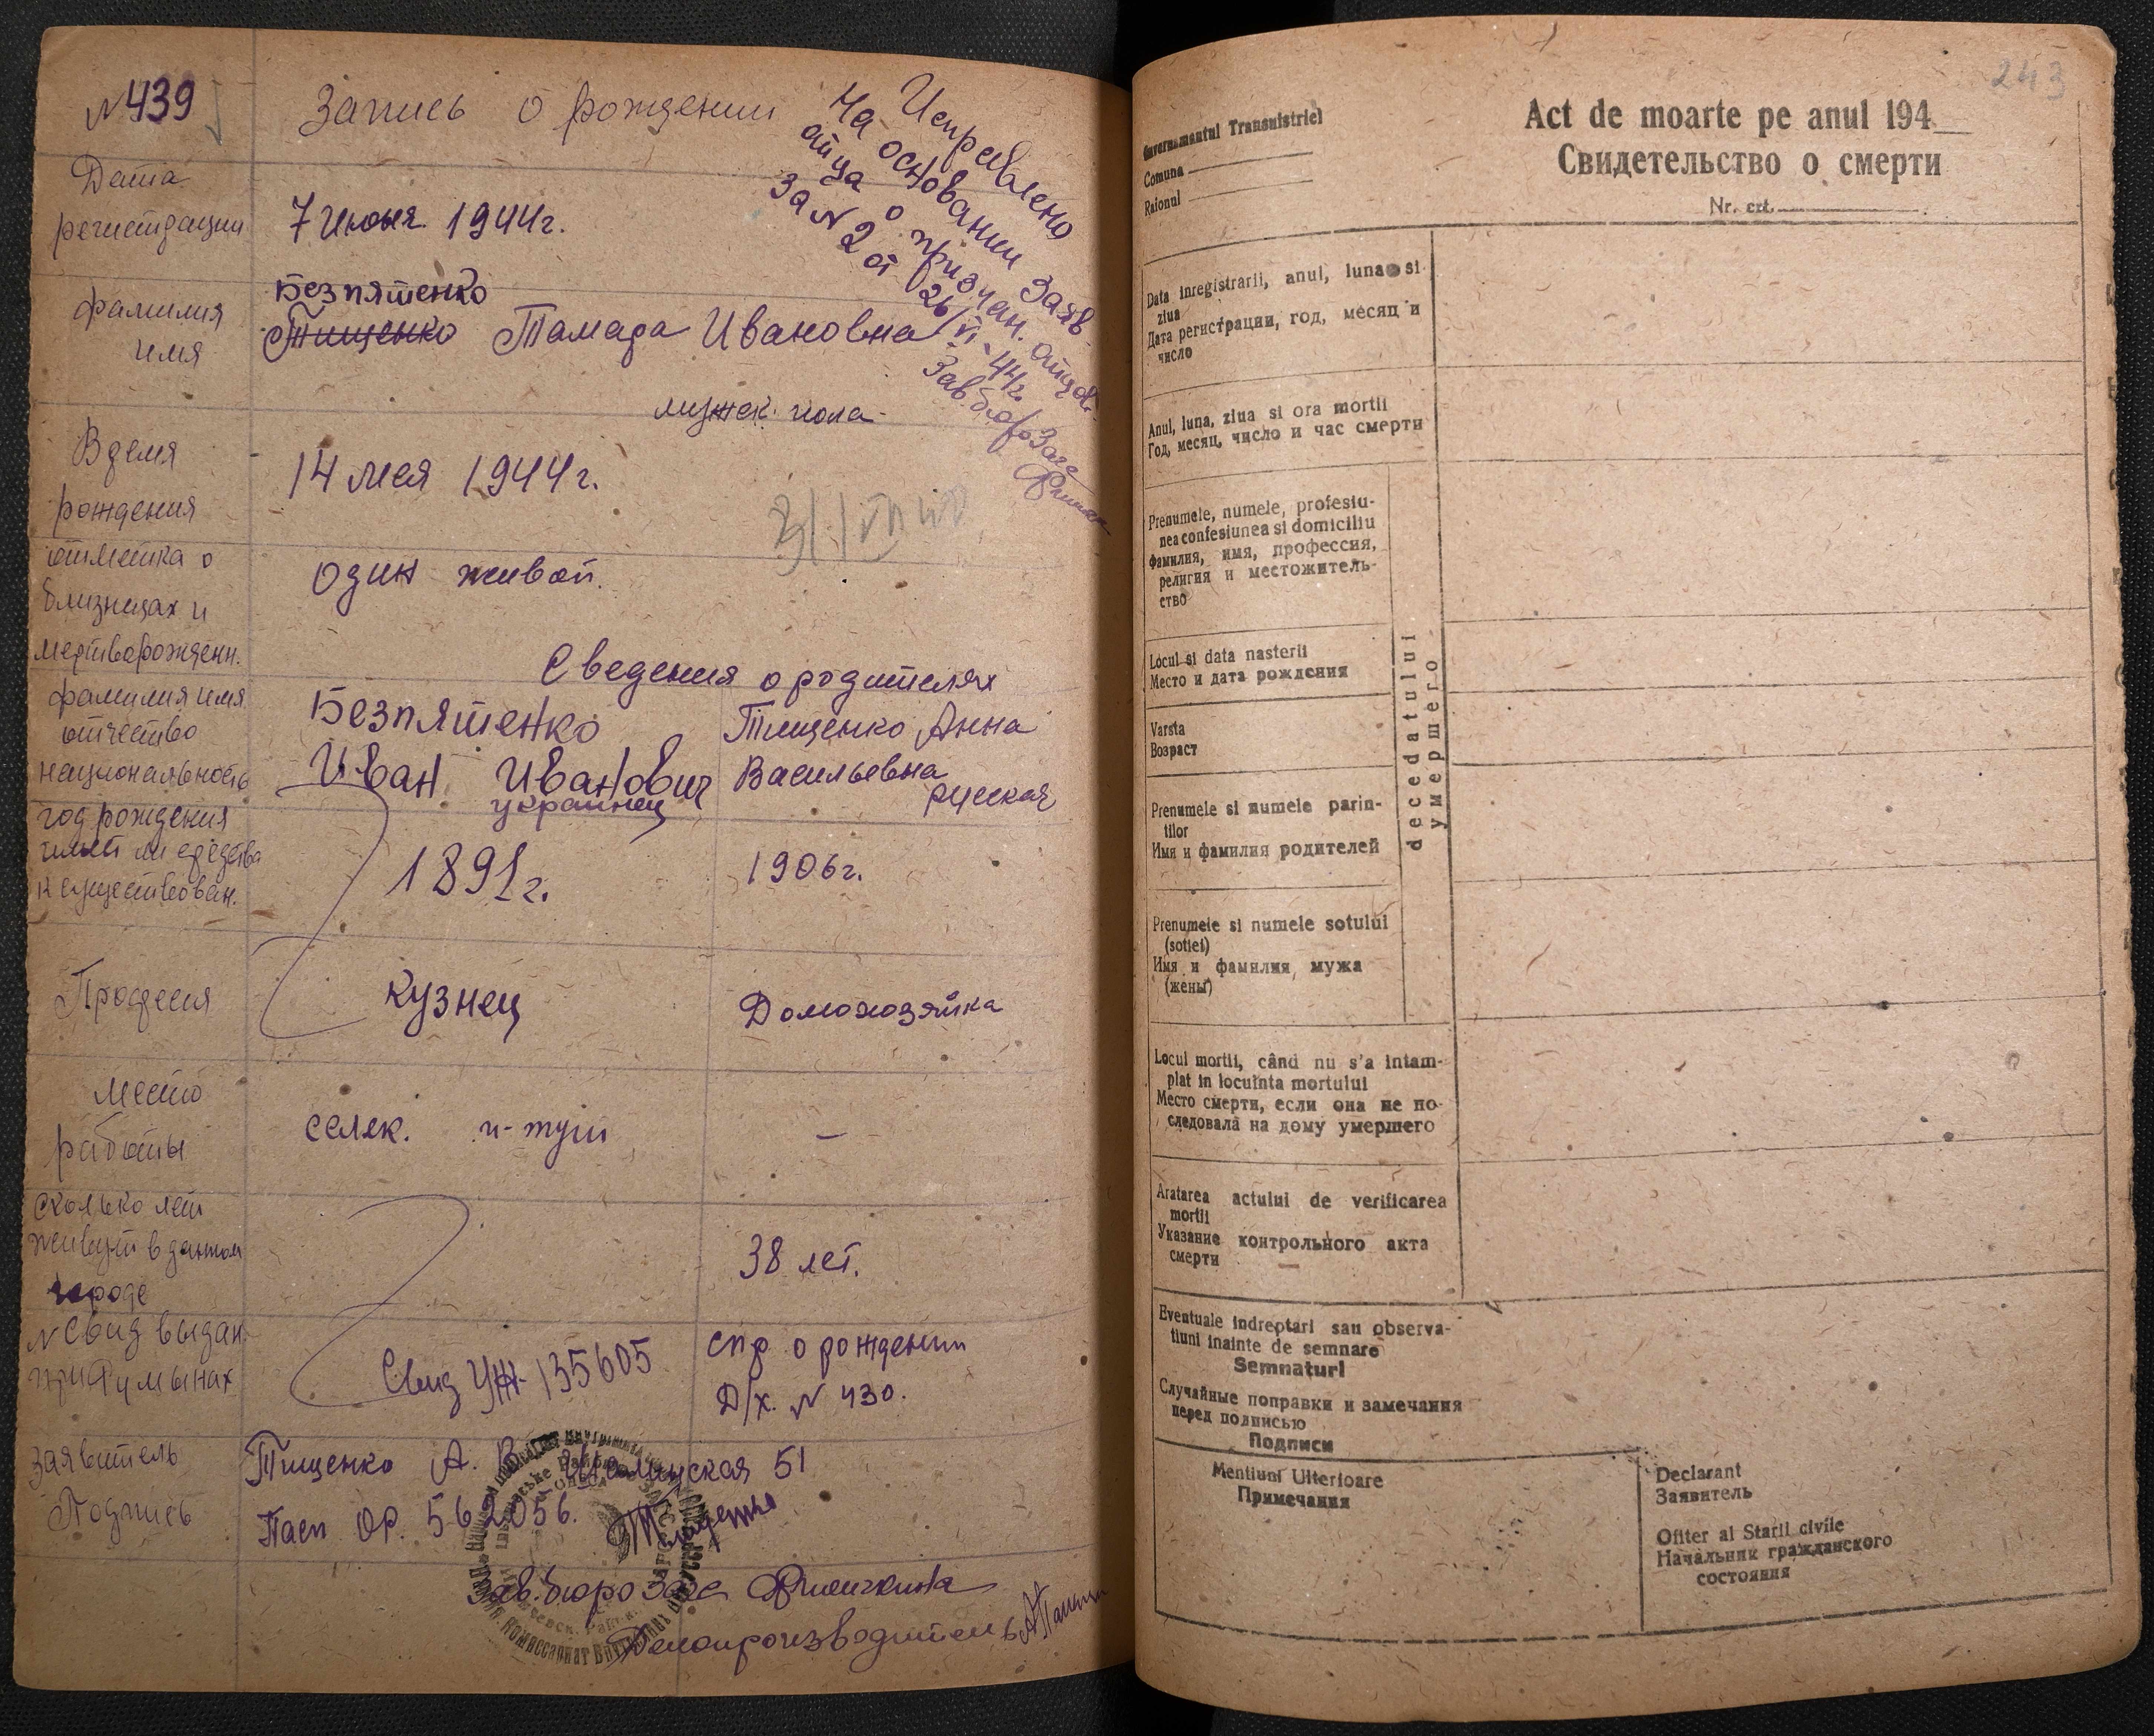 №439
Запись о рождении
Исправлено
На основании Заяв.
отца о признан. отцов.
за № 2 от 26/VI-44г.
Зав. бюро Загс
Дата
регистрации
7 июня 1944г.
фамилия
имя
Безпятенко
Тищенко Тамара Ивановна
мужск. пола
Время
рождения
14 мая 1944г.
отметка о
близнецах и
мертворожденн.
один живой.
Сведения о родителях
фамилия имя
отчество
национальность
Безпятенко
Иван Иванович
украинец
Тищенко Анна
Васильевна
русская
год рождения
имеет ли средства
к существован.
1891г.
1906г.
Професия
кузнец
Домохозяйка
Место
работы
селек. и-тут
—
Сколько лет
живут в данном
городе
38 лет.
№ Свид выдан
при Румынах
Свид УЖ-135605
спр о рождении
Д/х. № 430.
Заявитель
Подпись
Тищенко А. В. 51
Пасп Ор. 562056. Тищенко
Зав. бюро Загс
Делопроизводитель
243
Guvernamantul Transnistriei
Comuna
Raionul
Act de moarte pe anul 194
Свидетельство о смерти
Nr. crt.
Data inregistrarii, anul, luna si
ziua
Дата регистрации, год, месяц и
число
Anul, luna, ziua si ora mortii
Год, месяц, число и час смерти
Prenumele, numele, profesiu-
nea confesiunea si domiciliu
Фамилия, имя, профессия,
религия и местожитель-
ство
Locul si data nasterii
Место и дата рождения
Varsta
Возраст
Prenumele si numele parin-
tilor
Имя и фамилия родителей
Prenumele si numele sotului
(sotiei)
Имя и фамилия мужа
(жены)
decedatului
умершего
Locul mortii, când nu s'a intam-
plat in locuinta mortului
Место смерти, если она не по-
следовала на дому умершего
Aratarea actului de verificarea
mortii
Указание контрольного акта
смерти
Eventuale indreptari sau observa-
tiuni inainte de semnare
Semnaturi
Случайные поправки и замечания
перед подписью
Подписи
Mentiuni Ulterioare
Примечания
Declarant
Заявитель
Ofiter al Starii civile
Начальник гражданского
состояния